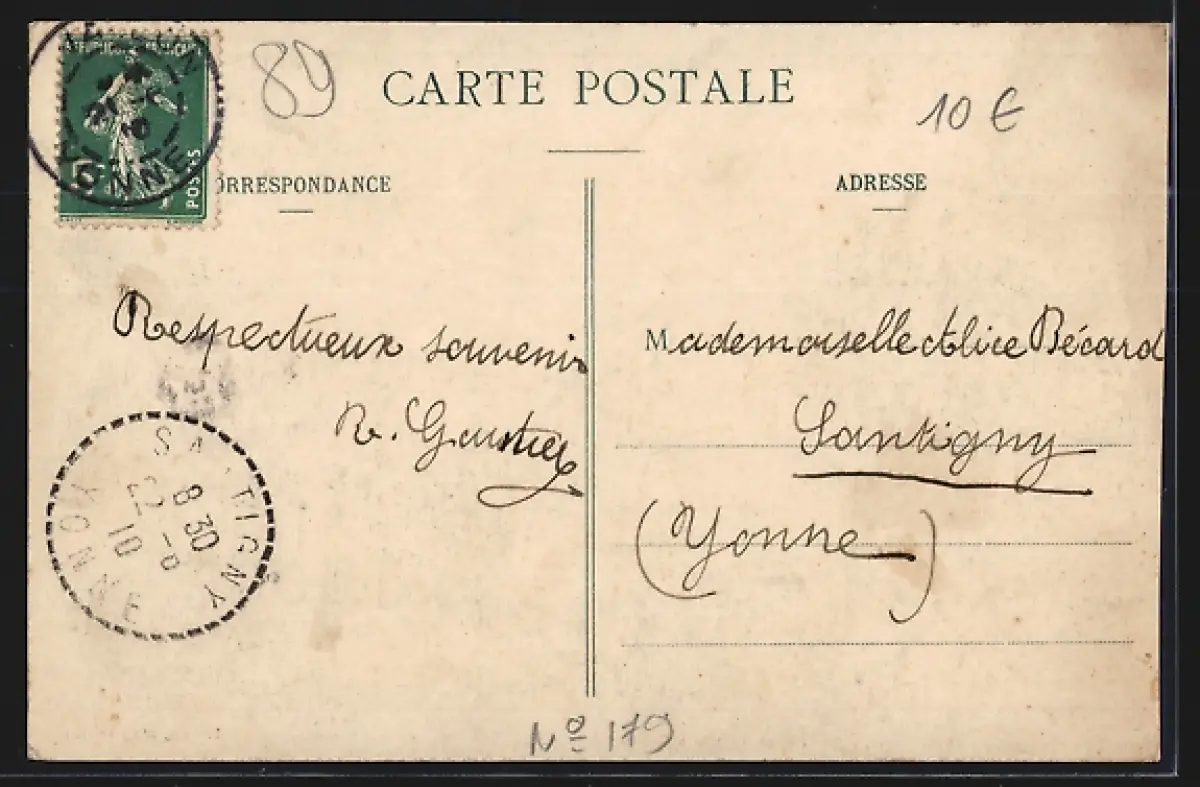 RÉPUBLIQUE FRANÇAISE
POSTES
YONNE
89
CARTE POSTALE
10 €
ORRESPONDANCE
ADRESSE
Respectueux souvenir
R. Gautier
Mademoiselle Alice Bécard
Santigny
(Yonne)
SANTIGNY
8 30
22 -8
10
YONNE
Nº 179